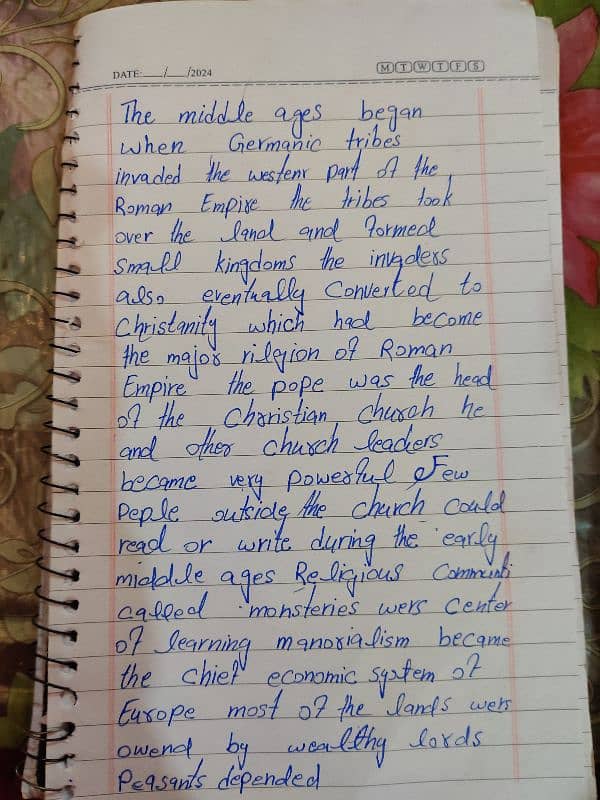 DATE:___/___/2024
M T W T F S
The middle ages began
when Germanic tribes
invaded the westenr part of the
Roman Empire the tribes took
over the land and formed
small kingdoms the invaders
also eventually Converted to
Christanity which had become
the major rilegion of Roman
Empire the pope was the head
of the Christian church he
and other church leaders
became very powerful Few
Peple outside the church could
read or write during the early
middle ages Religious Communiti
called monsteries wers Center
of learning manorialism became
the chief economic system of
Europe most of the lands wers
owend by wealthy lords
Peasants depended